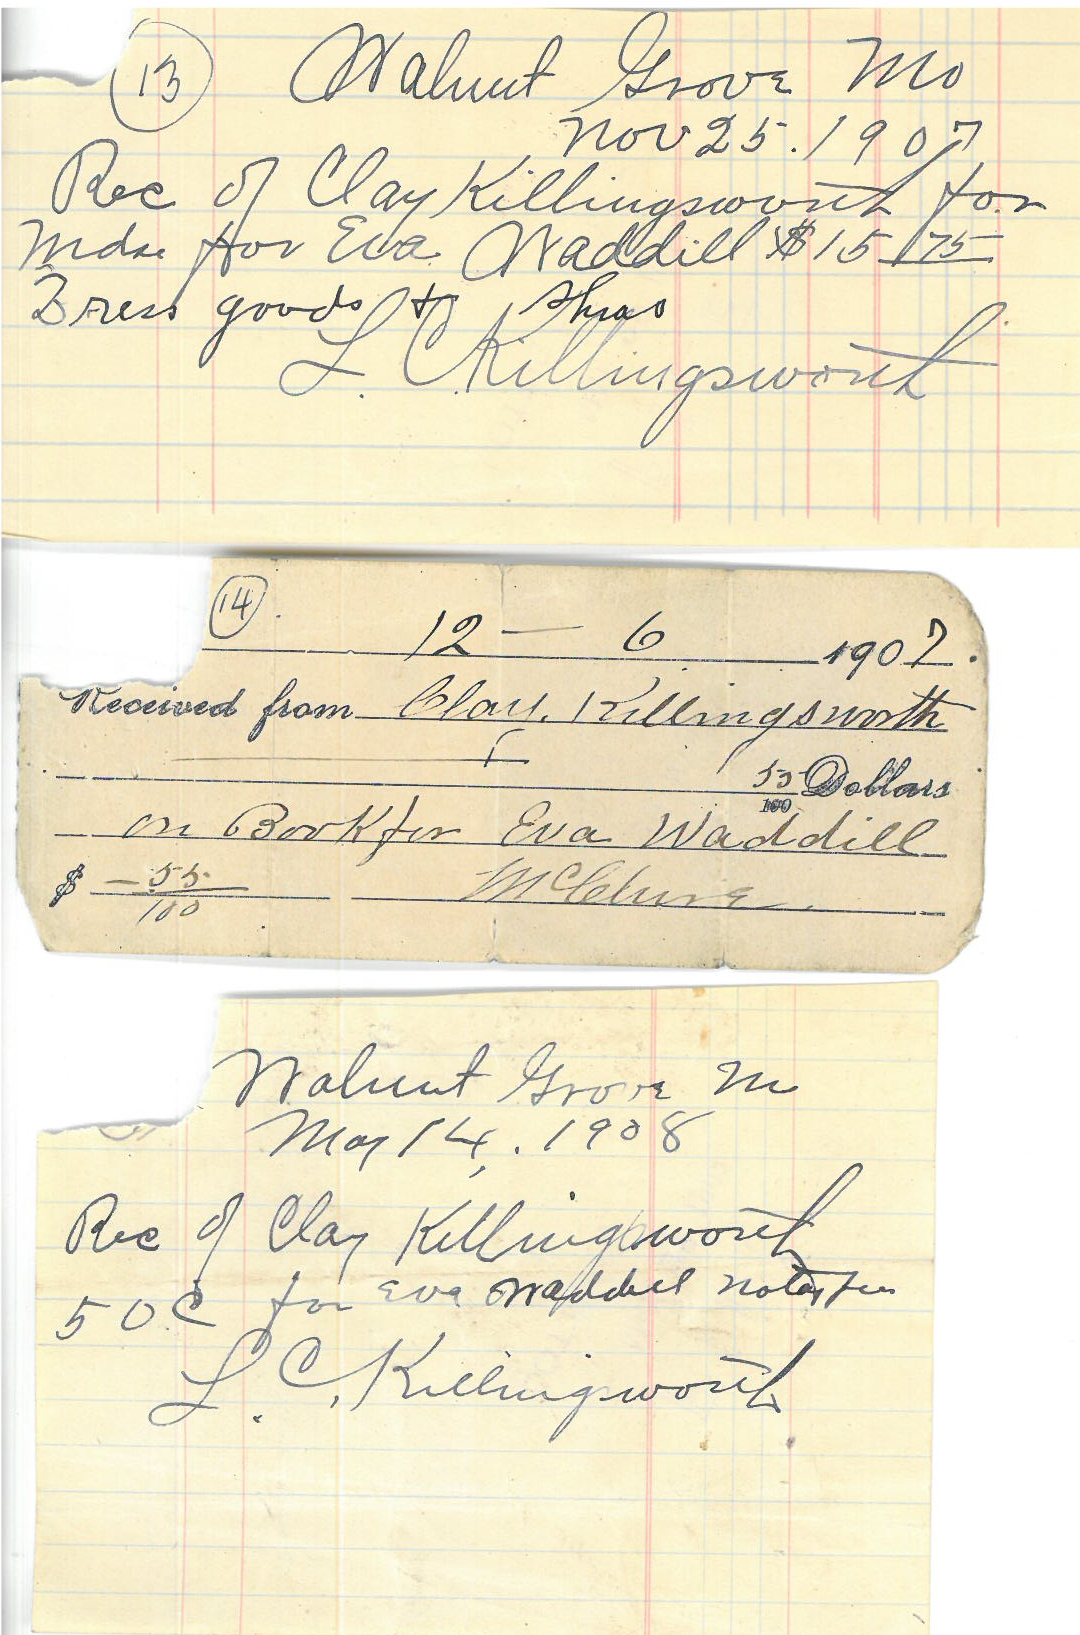 13
Walnut Grove Mo
Nov 25. 1907
Rec of Clay Killingsworth for
Mdse for Eva Waddill $15 75
Dress goods &
L. C. Killingsworth
14
12 — 6 1907.
Received from Clay Killingsworth
55/100 Dollars
on Book for Eva Waddill
$ — 55/100 McClure
Walnut Grove M
May 14, . 1908
Rec of Clay Killingsworth
50 C for Eva Waddill
L. C. Killingsworth